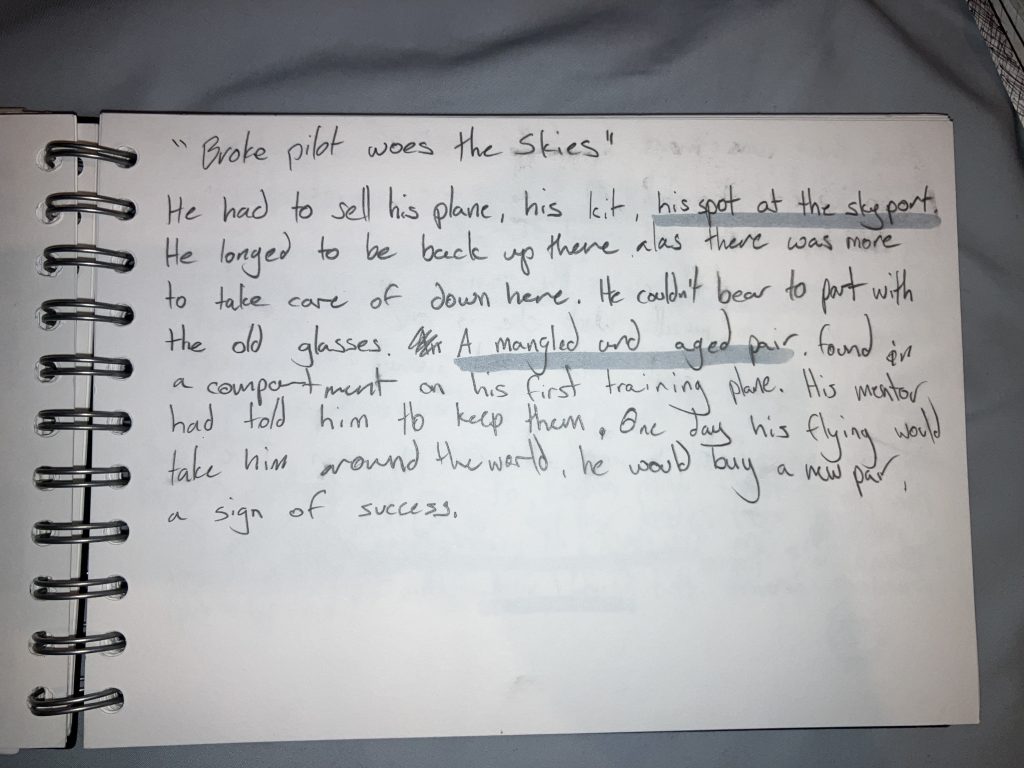 "Broke pilot woes the Skies"
He had to sell his plane, his kit, his spot at the skyport.
He longed to be back up there. alas there was more
to take care of down here. He couldn't bear to part with
the old glasses. A mangled and aged pair. found in
a compartment on his first training plane. His mentor
had told him to keep them. One day his flying would
take him around the world, he would buy a new pair,
a sign of success.